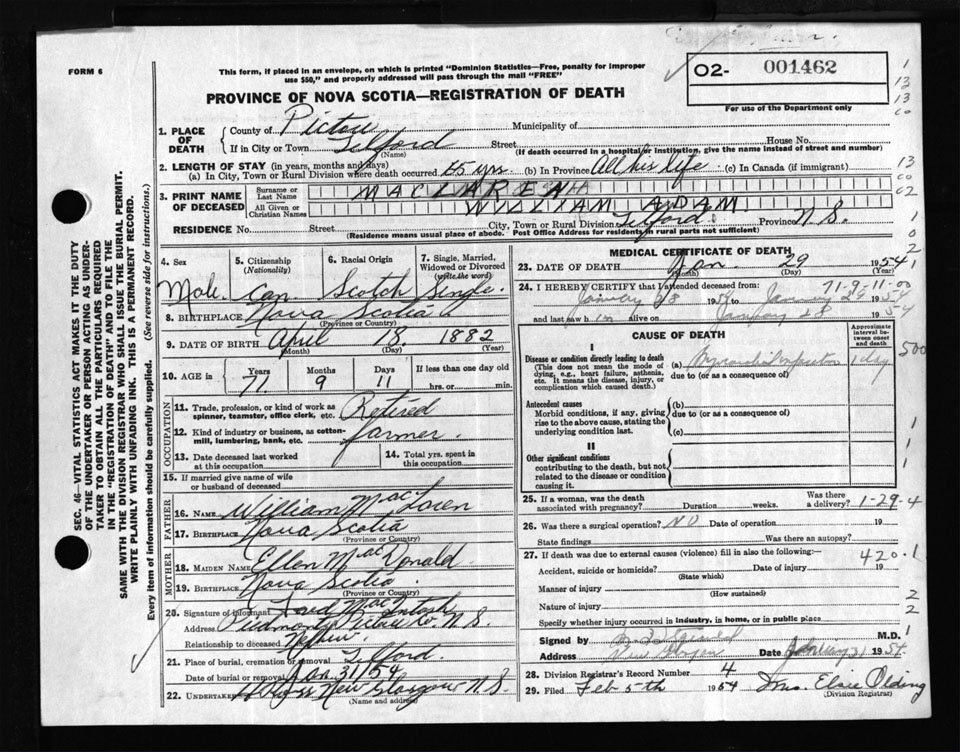 FORM 6
This form, if placed in an envelope, on which is printed "Dominion Statistics—Free, penalty for improper
use $50," and properly addressed will pass through the mail "FREE"
PROVINCE OF NOVA SCOTIA—REGISTRATION OF DEATH
O2- 001462
For use of the Department only
1. PLACE OF DEATH
County of Pictou Municipality of
If in City or Town Telford Street House No.
(Name) (If death occurred in a hospital or institution, give the name instead of street and number)
2. LENGTH OF STAY (in years, months and days)
(a) In City, Town or Rural Division where death occurred 15 yrs. (b) In Province All his life (c) In Canada (if immigrant)
3. PRINT NAME OF DECEASED
Surname or Last Name MACLAREN
All Given or Christian Names WILLIAM ADAM
RESIDENCE No. Street City, Town or Rural Division Telford Province N.S.
(Residence means usual place of abode. Post Office Address for residents in rural parts not sufficient)
4. Sex 5. Citizenship (Nationality) 6. Racial Origin 7. Single, Married, Widowed or Divorced (write the word)
Male Can. Scotch Single
8. BIRTHPLACE Nova Scotia
(Province or Country)
9. DATE OF BIRTH April 18, 1882
(Month) (Day) (Year)
10. AGE in Years Months Days If less than one day
71 9 11 hrs. or min.
OCCUPATION
11. Trade, profession, or kind of work as spinner, teamster, office clerk, etc. Retired
12. Kind of industry or business, as cotton-mill, lumbering, bank, etc. farmer.
13. Date deceased last worked at this occupation
14. Total yrs. spent in this occupation
15. If married give name of wife or husband of deceased
FATHER
16. NAME William MacLaren
17. BIRTHPLACE Nova Scotia
(Province or Country)
MOTHER
18. MAIDEN NAME Ellen MacDonald
19. BIRTHPLACE Nova Scotia
(Province or Country)
20. Signature of informant MacIntosh
Address Piedmont Pictou Co. N.S.
Relationship to deceased Nephew.
21. Place of burial, cremation or removal Telford.
Date of burial or removal Jan. 31/54
22. UNDERTAKER New Glasgow N.S.
(Name and address)
MEDICAL CERTIFICATE OF DEATH
23. DATE OF DEATH Jan. 29 1954
(Month) (Day) (Year)
71-9-11-00
24. I HEREBY CERTIFY that I attended deceased from:
January 1954 to January 29 1954
and last saw him alive on January 28 1954
CAUSE OF DEATH
Approximate interval between onset and death
I
Disease or condition directly leading to death
(This does not mean the mode of dying, e.g., heart failure, asthenia, etc. It means the disease, injury, or complication which caused death.)
(a) Myocardial infarction 1 day
due to (or as a consequence of)
500
Antecedent causes
Morbid conditions, if any, giving rise to the above cause, stating the underlying condition last.
(b)
due to (or as a consequence of)
(c)
II
Other significant conditions
contributing to the death, but not related to the disease or condition causing it.
25. If a woman, was the death associated with pregnancy? Duration weeks. Was there a delivery?
1-29-4
26. Was there a surgical operation? NO Date of operation 19
State findings Was there an autopsy?
27. If death was due to external causes (violence) fill in also the following:
420.1
Accident, suicide or homicide? Date of injury 19
(State which)
Manner of injury
(How sustained)
Nature of injury
Specify whether injury occurred in industry, in home, or in public place
Signed by M.D.
Address New Glasgow Date January 31 1954
28. Division Registrar's Record Number 4
29. Filed Feb 5th 1954 Mrs. Elsie Olding
(Division Registrar)
SEC. 46—VITAL STATISTICS ACT MAKES IT THE DUTY
OF THE UNDERTAKER OR PERSON ACTING AS UNDER-
TAKER TO OBTAIN ALL THE PARTICULARS REQUIRED
IN THE "REGISTRATION OF DEATH" AND TO FILE THE
SAME WITH THE DIVISION REGISTRAR WHO SHALL ISSUE THE BURIAL PERMIT.
WRITE PLAINLY WITH UNFADING INK. THIS IS A PERMANENT RECORD.
Every item of information should be carefully supplied. (See reverse side for instructions.)